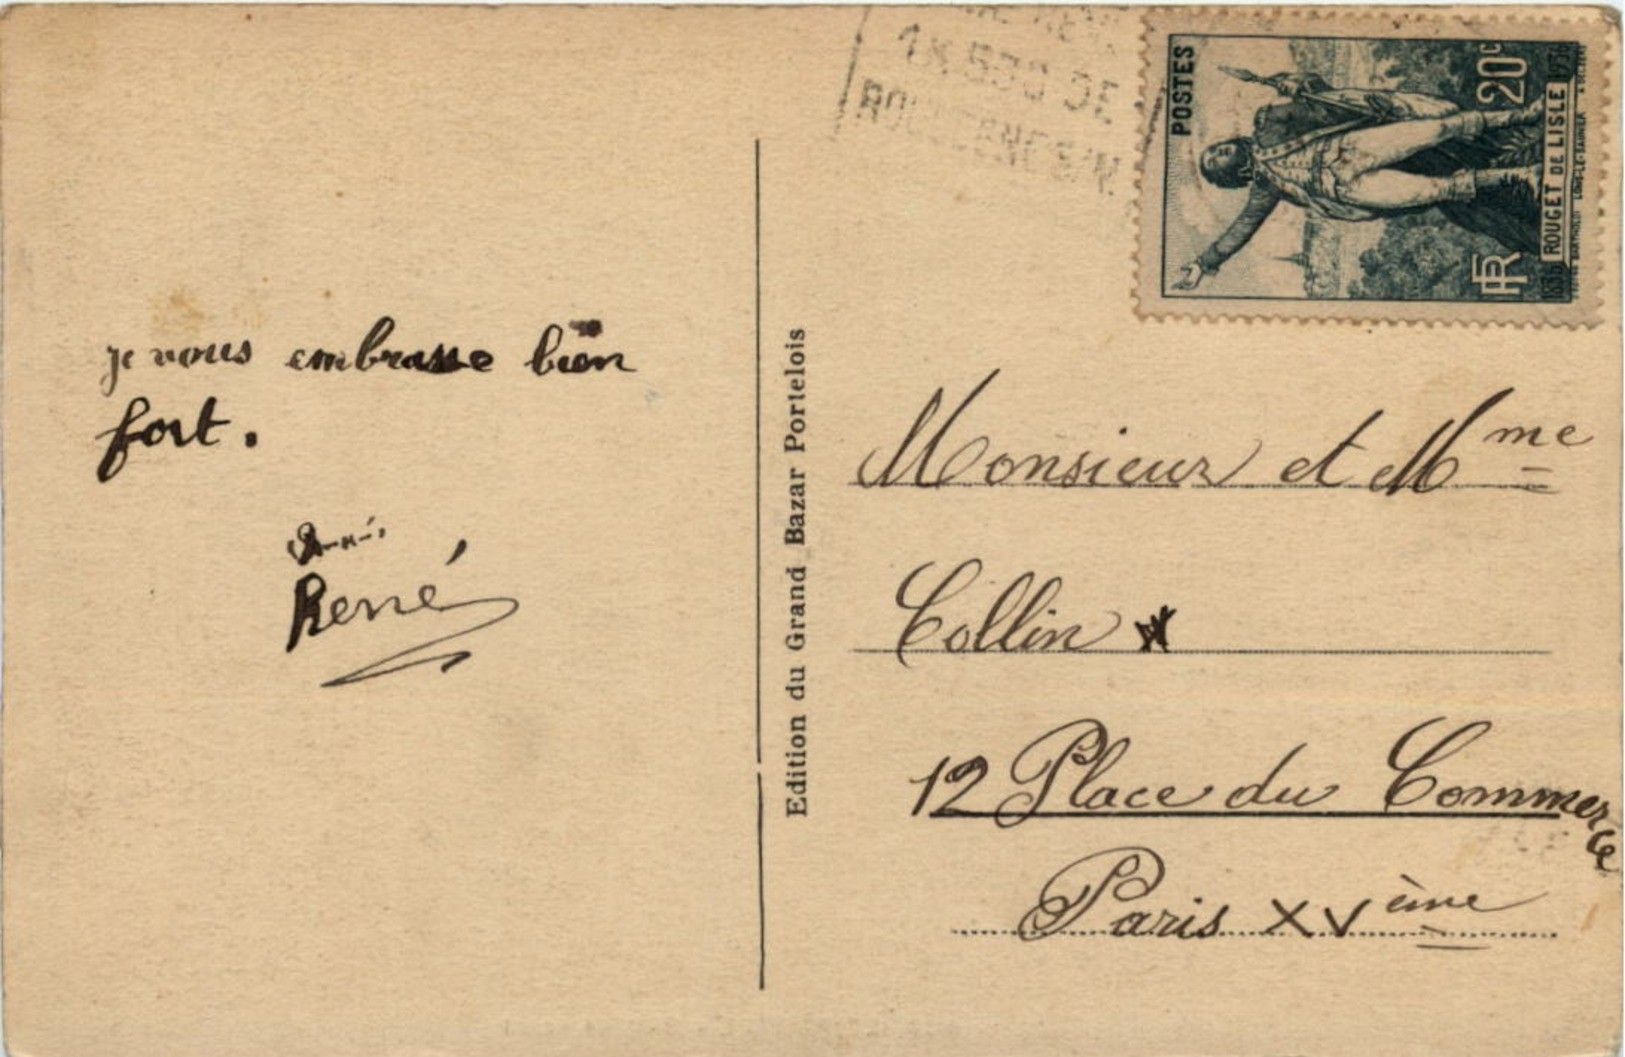 je vous embrasse bien
fort.
René
Edition du Grand Bazar Portelois
POSTES
20c
ROUGET DE LISLE
1836
1936
RF
Monsieur et Mme
Collin
12 Place du Commerce
Paris XVème